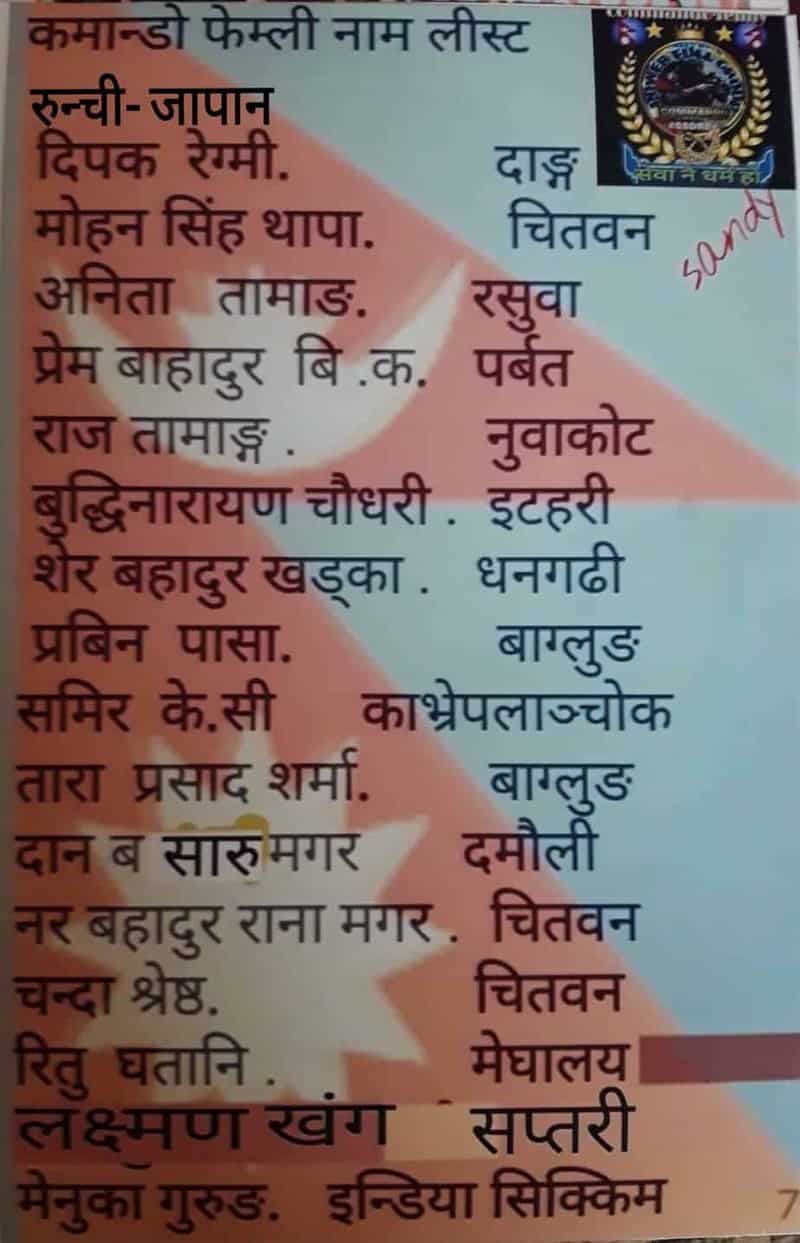 कमान्डो फेम्ली नाम लीस्ट
रुन्ची- जापान
दिपक रेग्मी. दाङ्ग
मोहन सिंह थापा. चितवन
अनिता तामाङ. रसुवा
प्रेम बाहादुर बि .क. पर्बत
राज तामाङ्ग . नुवाकोट
बुद्धिनारायण चौधरी . इटहरी
शेर बहादुर खड्का . धनगढी
प्रबिन पासा. बाग्लुङ
समिर के.सी काभ्रेपलाञ्चोक
तारा प्रसाद शर्मा. बाग्लुङ
दान ब सारु मगर दमौली
नर बहादुर राना मगर . चितवन
चन्दा श्रेष्ठ. चितवन
रितु घतानि . मेघालय
लक्ष्मण खंग सप्तरी
मेनुका गुरुङ. इन्डिया सिक्किम
7
COMMANDO
सेवा नै धर्म हो
sandy